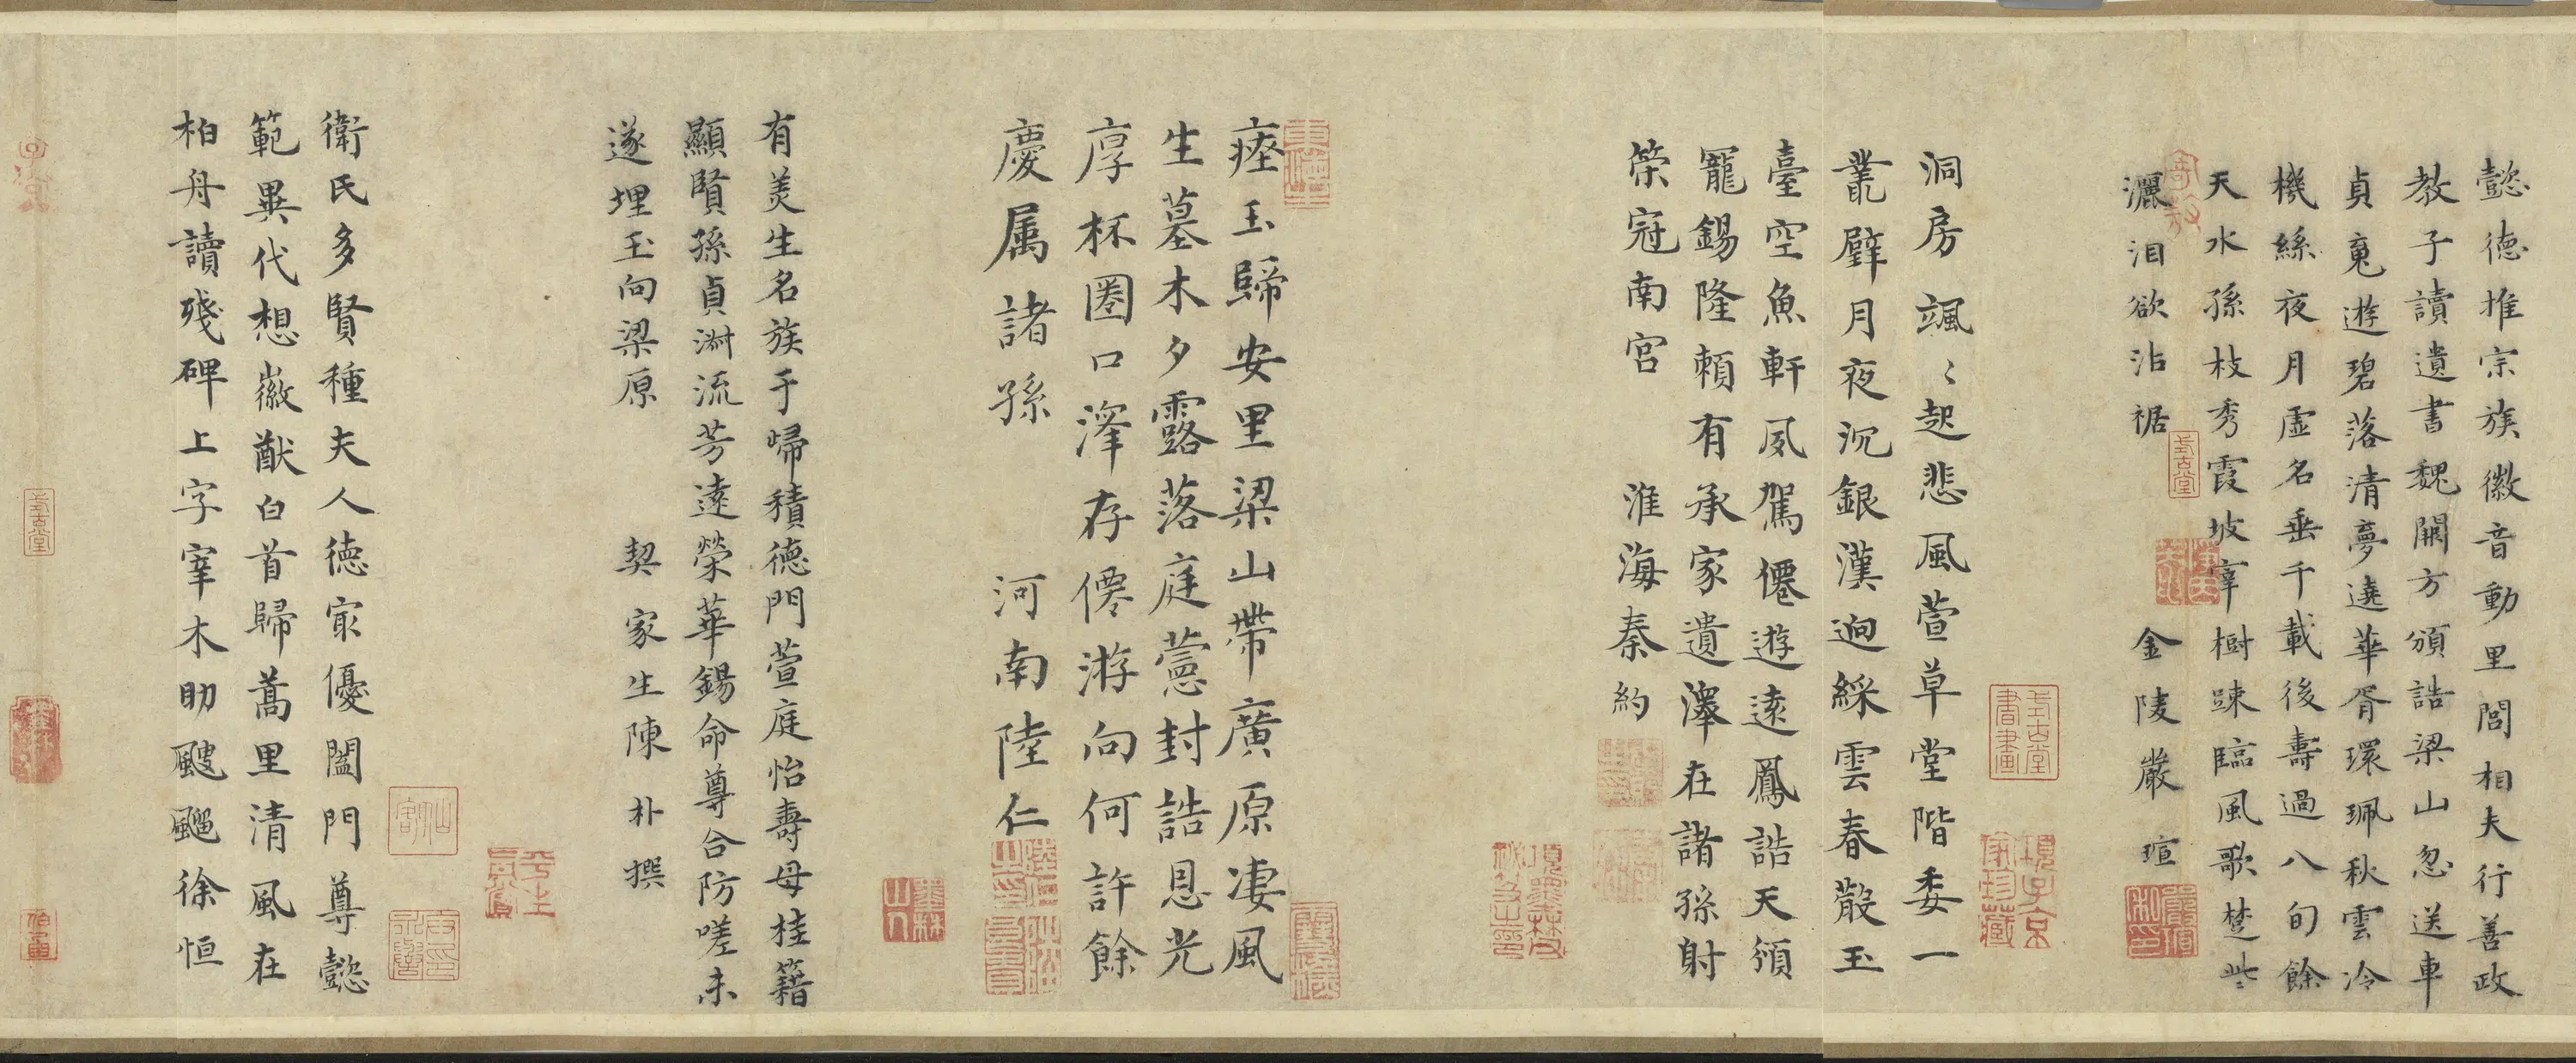 懿德推宗族徽音動里閭相夫行善政
教子讀遺書魏闕方頒誥梁山忽送車
貞魂遊碧落清夢遶華胥環珮秋雲冷
機絲夜月虛名垂千載後壽過八旬餘
天水孫枝秀霞坡宰樹踈臨風歌楚些
灑泪欲沾裾 金陵嚴瑄
洞房颯〻起悲風萱草堂階委一
叢璧月夜沉銀漢迥綵雲春散玉
臺空魚軒夙駕僊遊遠鳳誥天頒
寵錫隆頼有承家遺澤在諸孫射
策冠南宮 淮海秦約
瘞玉歸安里梁山帶廣原凄風
生墓木夕露落庭萱封誥恩光
厚杯圈口澤存僊游向何許餘
慶属諸孫 河南陸仁
有美生名族于㱕積德門萱庭怡壽母桂籍
顯賢孫貞淑流芳遠榮華錫命尊合防嗟未
遂埋玉向梁原 契家生陳朴撰
衛氏多賢種夫人德最優闔門尊懿
範異代想徽猷白首歸蒿里清風在
柏舟讀殘碑上字宰木助飀飀徐恒